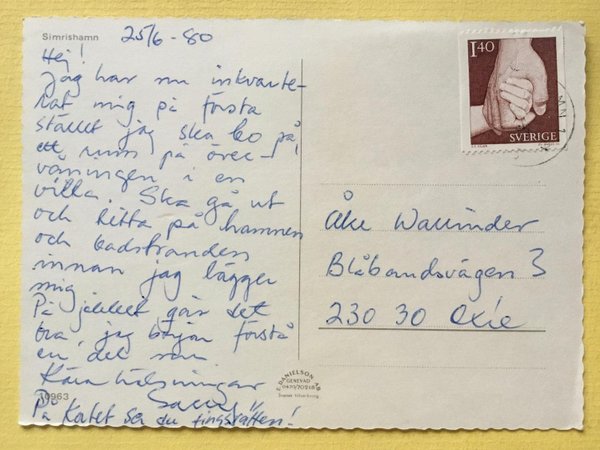 Simrishamn
25/6-80
Hej!
Jag har nu inkvarte-
rat mig på första
stället jag ska bo på,
ett rum på över-
våningen i en
villa. Ska gå ut
och titta på hamnen
och badstranden
innan jag lägger
mig.
På jobbet går det
bra, jag börjar förstå
en del nu
Kära hälsningar
På kortet ser du tingsrätten!
10963
1.40
SVERIGE
Åke Wallinder
Blåbandsvägen 3
230 30 Oxie
E. DANIELSON AB
GENEVAD
0430/70218